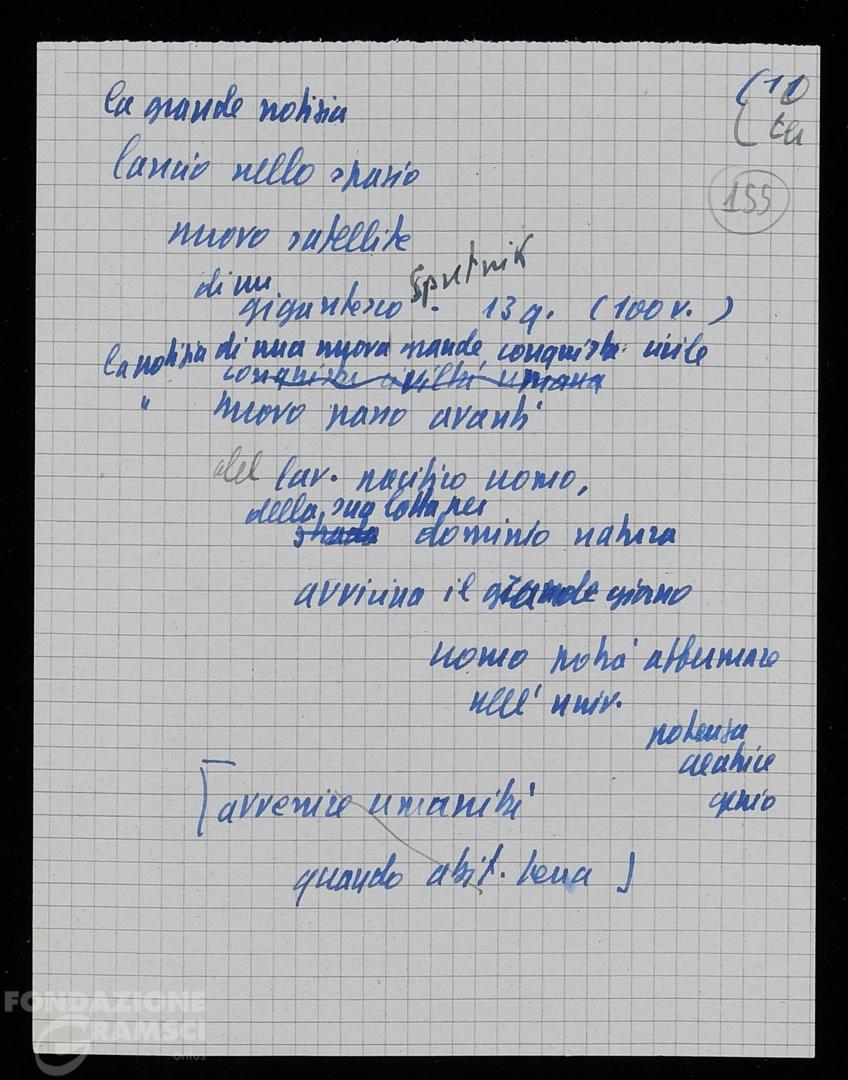 la grande notizia
(10
lancio nello spazio
155
nuovo satellite
di un
gigantesco Sputnik - 13 q. (100 v.)
la notizia di una nuova grande conquista civile
conquista civiltà umana
" nuovo passo avanti
del lav. pacifico uomo,
della sua lotta per
dominio natura
avvicina il grande giorno
uomo potrà affermare
nell' univ.
potenza
creatrice
genio
[avvenire umanità
quando abit. terra]
FONDAZIONE
GRAMSCI
onlus